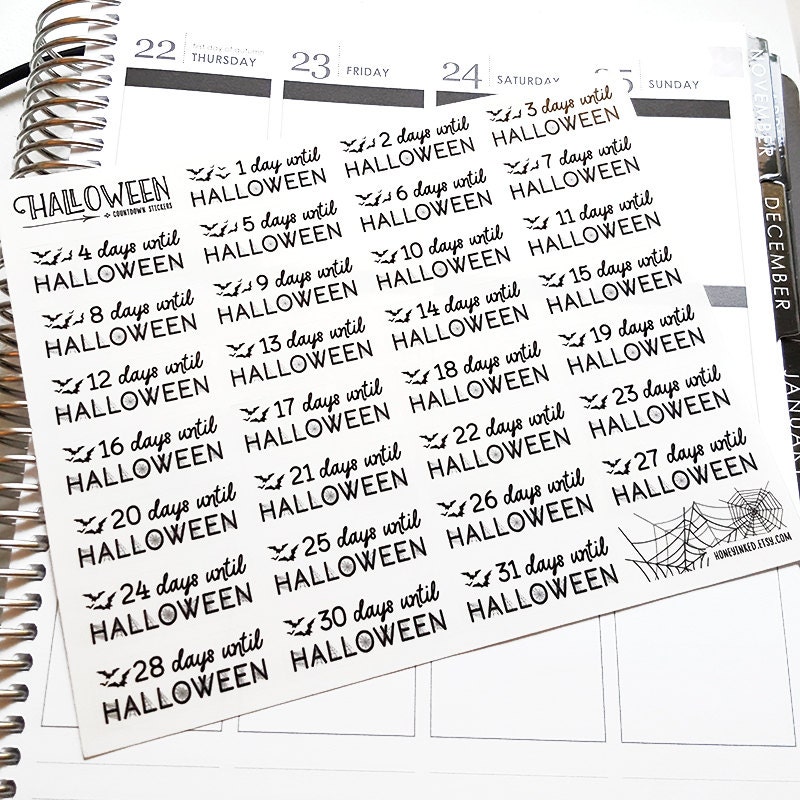 22
first day of autumn
THURSDAY
23 FRIDAY
24 SATURDAY
SUNDAY
NOVEMBER
DECEMBER
JANUAR
HALLOWEEN
COUNTDOWN STICKERS
1 day until
HALLOWEEN
2 days until
HALLOWEEN
3 days until
HALLOWEEN
4 days until
HALLOWEEN
5 days until
HALLOWEEN
6 days until
HALLOWEEN
7 days until
HALLOWEEN
8 days until
HALLOWEEN
9 days until
HALLOWEEN
10 days until
HALLOWEEN
11 days until
HALLOWEEN
12 days until
HALLOWEEN
13 days until
HALLOWEEN
14 days until
HALLOWEEN
15 days until
HALLOWEEN
16 days until
HALLOWEEN
17 days until
HALLOWEEN
18 days until
HALLOWEEN
19 days until
HALLOWEEN
20 days until
HALLOWEEN
21 days until
HALLOWEEN
22 days until
HALLOWEEN
23 days until
HALLOWEEN
24 days until
HALLOWEEN
25 days until
HALLOWEEN
26 days until
HALLOWEEN
27 days until
HALLOWEEN
28 days until
HALLOWEEN
30 days until
HALLOWEEN
31 days until
HALLOWEEN
HONEYINKED.ETSY.COM